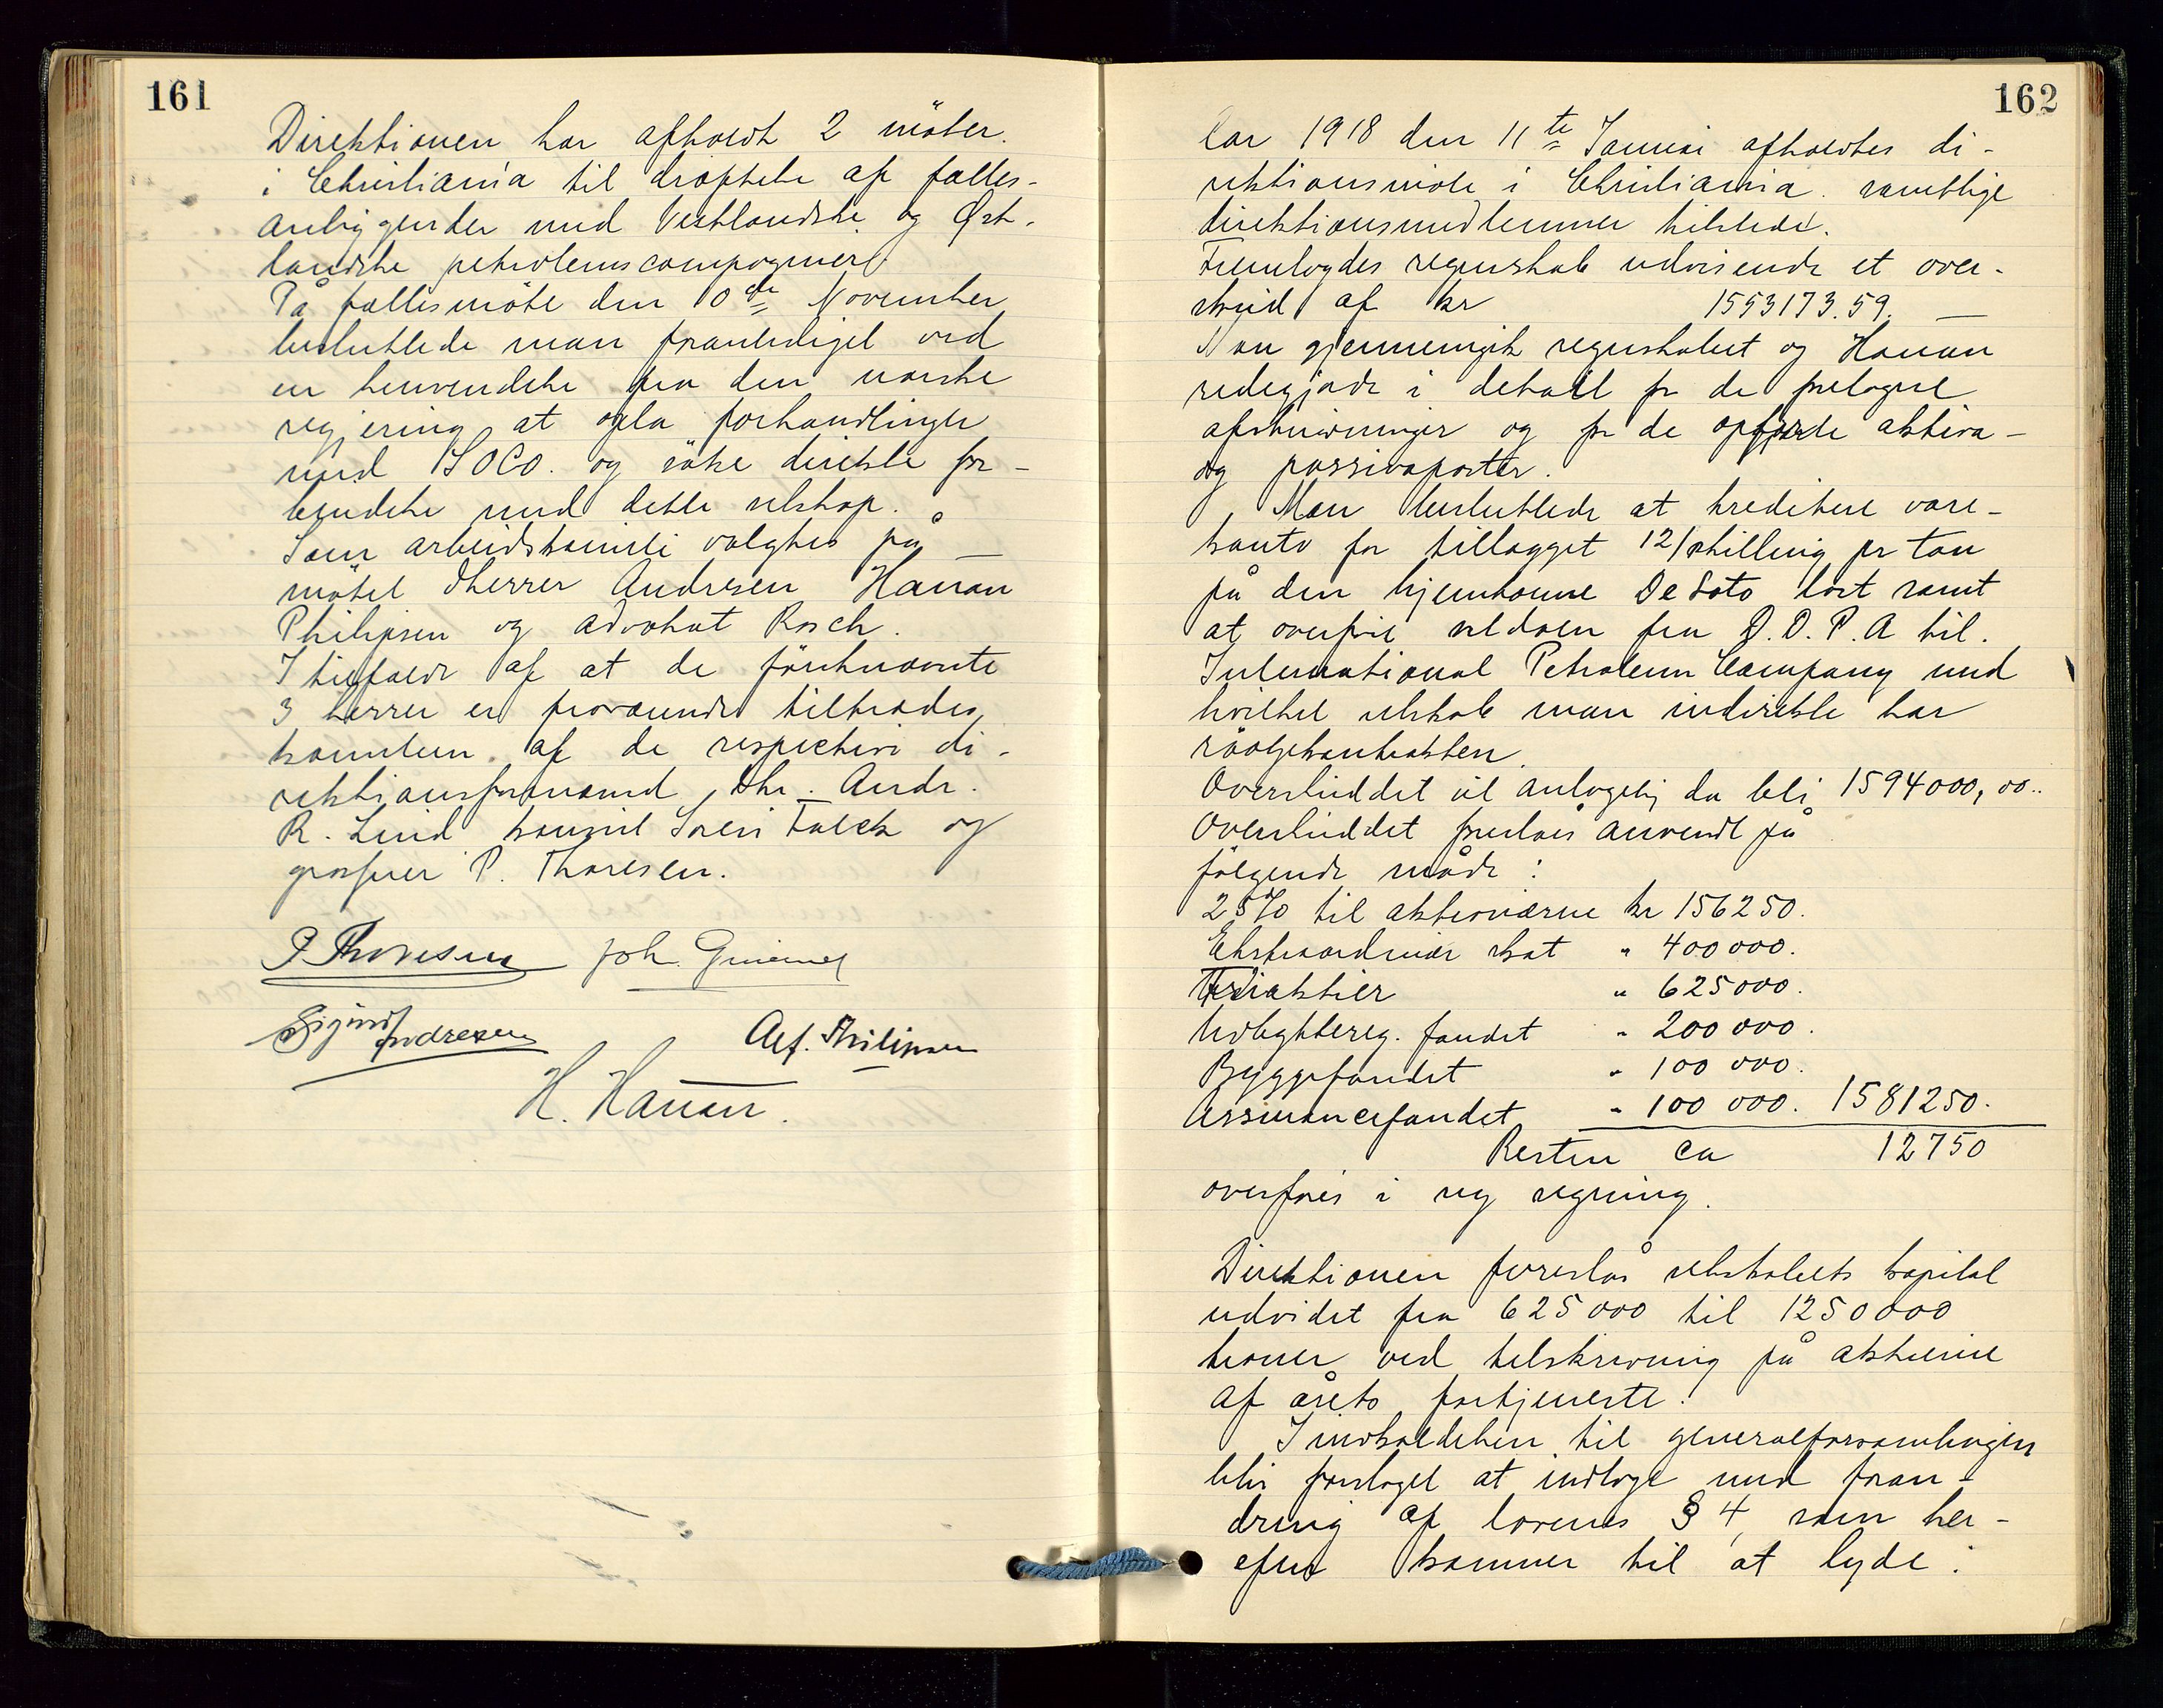 161
Direktionen har afholdt 2 möter
i Christiania til dröftelse af fælles-
anliggender med Vestlandske og Øst-
landske petroleumscompagnier
På fællesmöte den 10de November
besluttede man foranlediget ved
en henvendelse fra den norske
regjering at opta forhandlinger
med SOCo. og söke direkte for-
bindelse med dette selskap.
Som arbeidskomite valgtes på
mötet dherrer Andresen Hanan
Philipsen og advokat Rosch.
I tilfælde af at de förstnævnte
3 herrer er fraværende tiltrædes
komiteen af de respektive di-
rektionsformænd, dhr. Andr.
R. Lind konsul Sören Falck og
grosserer P. Thoresen.
P. Thoresen Joh.
Sigurd Andresen Alf. Philipsen
H. Hanan.
162
Aar 1918 den 11te Januar afholdtes di-
rektionsmöte i Christiania. samtlige
direktionsmedlemmer tilstede.
Fremlagdes regnskab udvisende et over-
skud af kr 1553173.59.
Man gjennemgik regnskabet og Hanan
redegjorde i detail for de foretagne
afskrivninger og for de opförte aktiva-
og passivaposter.
Man besluttede at kreditere vare-
konto for tillægget 12/ shilling pr ton
på den hjemkomne De Soto last samt
at overföre saldoen fra D.D.P.A til
International Petroleum Company med
hvilket selskab man indirekte har
råoljekontrakten.
Overskuddet vil antagelig da bli 1594000,00..
Overskuddet foreslåes anvendt på
fölgende måde:
25% til aktionærerne kr 156250.
Ekstraordinær skat " 400000.
Friaktier " 625000.
Udbyttereg. fondet " 200000.
Byggefondet " 100 000.
Assurancefondet " 100 000. 1581250.
Resten ca 12750
overföres i ny regning.
Direktionen foreslår selskabets kapital
udvidet fra 625000 til 1250000
kroner ved tilskrivning på aktierne
af årets fortjeneste.
I indkaldelsen til generalforsamlingen
blir forslaget at indtage med foran-
dring af lovenes § 4, som her-
efter kommer til at lyde: